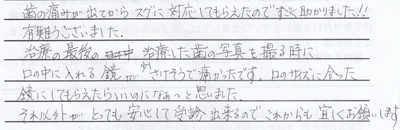 歯の痛みが出てからスグに対応してもらえたのですごく助かりました!!
有難うございました。
治療の最後の 治療した歯の写真を撮る時に
口の中に入れる鏡が少しさけそうで痛かったです。口のサイズに合った
鏡にしてもらえたらいいのになぁ〜と思いました。
それ以外がとっても安心して受診出来るのでこれからも宜しくお願いします